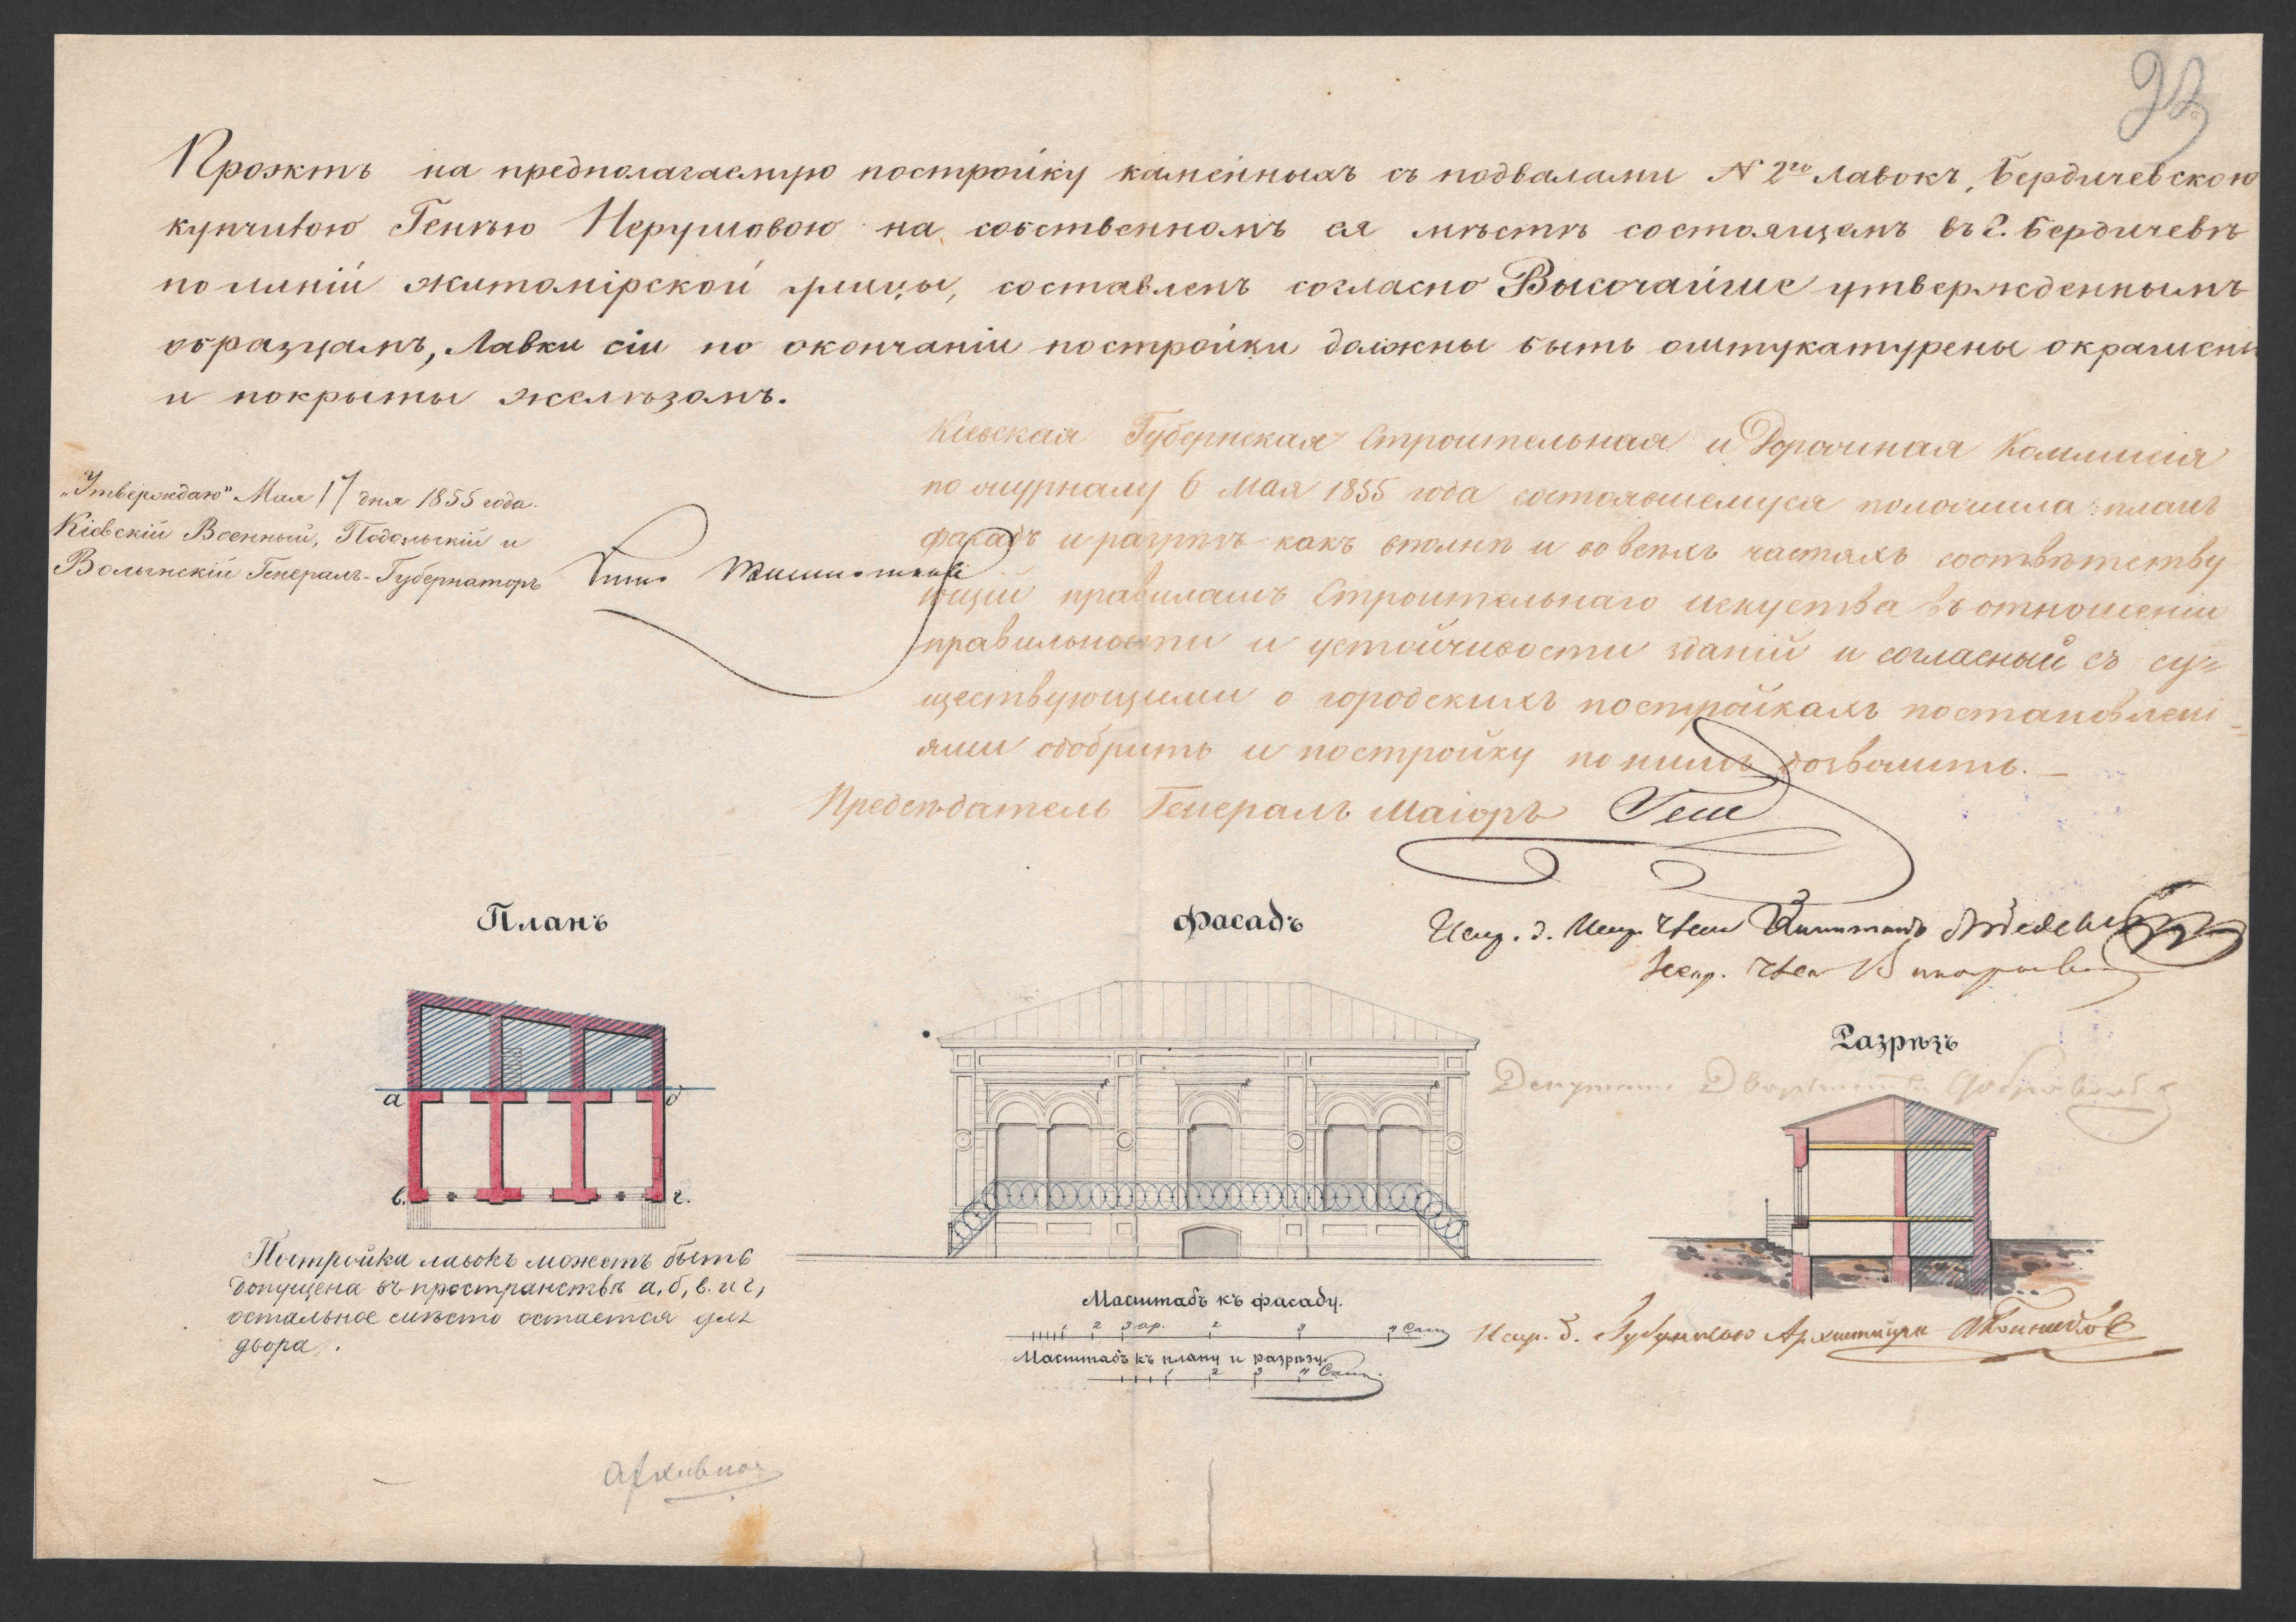 93
Проэктъ на предполагаемую постройку каменныхъ съ подвалами N 2хъ Лавокъ, Бердичевскою
купчихою Генею Нерушовою на собственномъ ея мѣстѣ состоящемъ въ г. Бердичевѣ
по линіи житомірской улицы, составленъ согласно Высочайше утвержденнымъ
образцамъ, Лавки сіи по окончаніи постройки должны быть оштукатурены окрашены
и покрыты желѣзомъ.
Кіевская Губернская Строительная и Дорожная Коммисія
по журналу 6 Мая 1855 года состоявшемуся положила: планъ
фасадъ и разрѣзъ какъ вполнѣ и во всѣхъ частяхъ соотвѣтству
ющій правиламъ Строительнаго искуства въ отношеніи
правильности и устойчивости зданій и согласный съ су=
ществующими о городскихъ постройкахъ постановлені=
ями одобрить и постройку по нимъ дозволить. —
Предсѣдатель Генералъ Маіоръ Гессе
„Утверждаю" Мая 17 дня 1855 года.
Кіевскій Военный, Подольскій и
Волынскій Генералъ-Губернаторъ
Испр. д. Искус. Член Капитанъ
Искус. Член
Депутатъ Дворянства
Планъ
а б
в. г.
Постройка лавокъ можетъ быть
допущена въ пространствѣ а, б, в. и г,
остальное мѣсто остается для
двора.
Фасадъ
Масштабъ къ фасаду.
1 2 3 ар. 2 3 4 Саж
Масштабъ къ плану и разрѣзу
1 2 3 4 Саж.
Разрѣзъ
Испр. д. Губернскаго Архитектора
Архивная